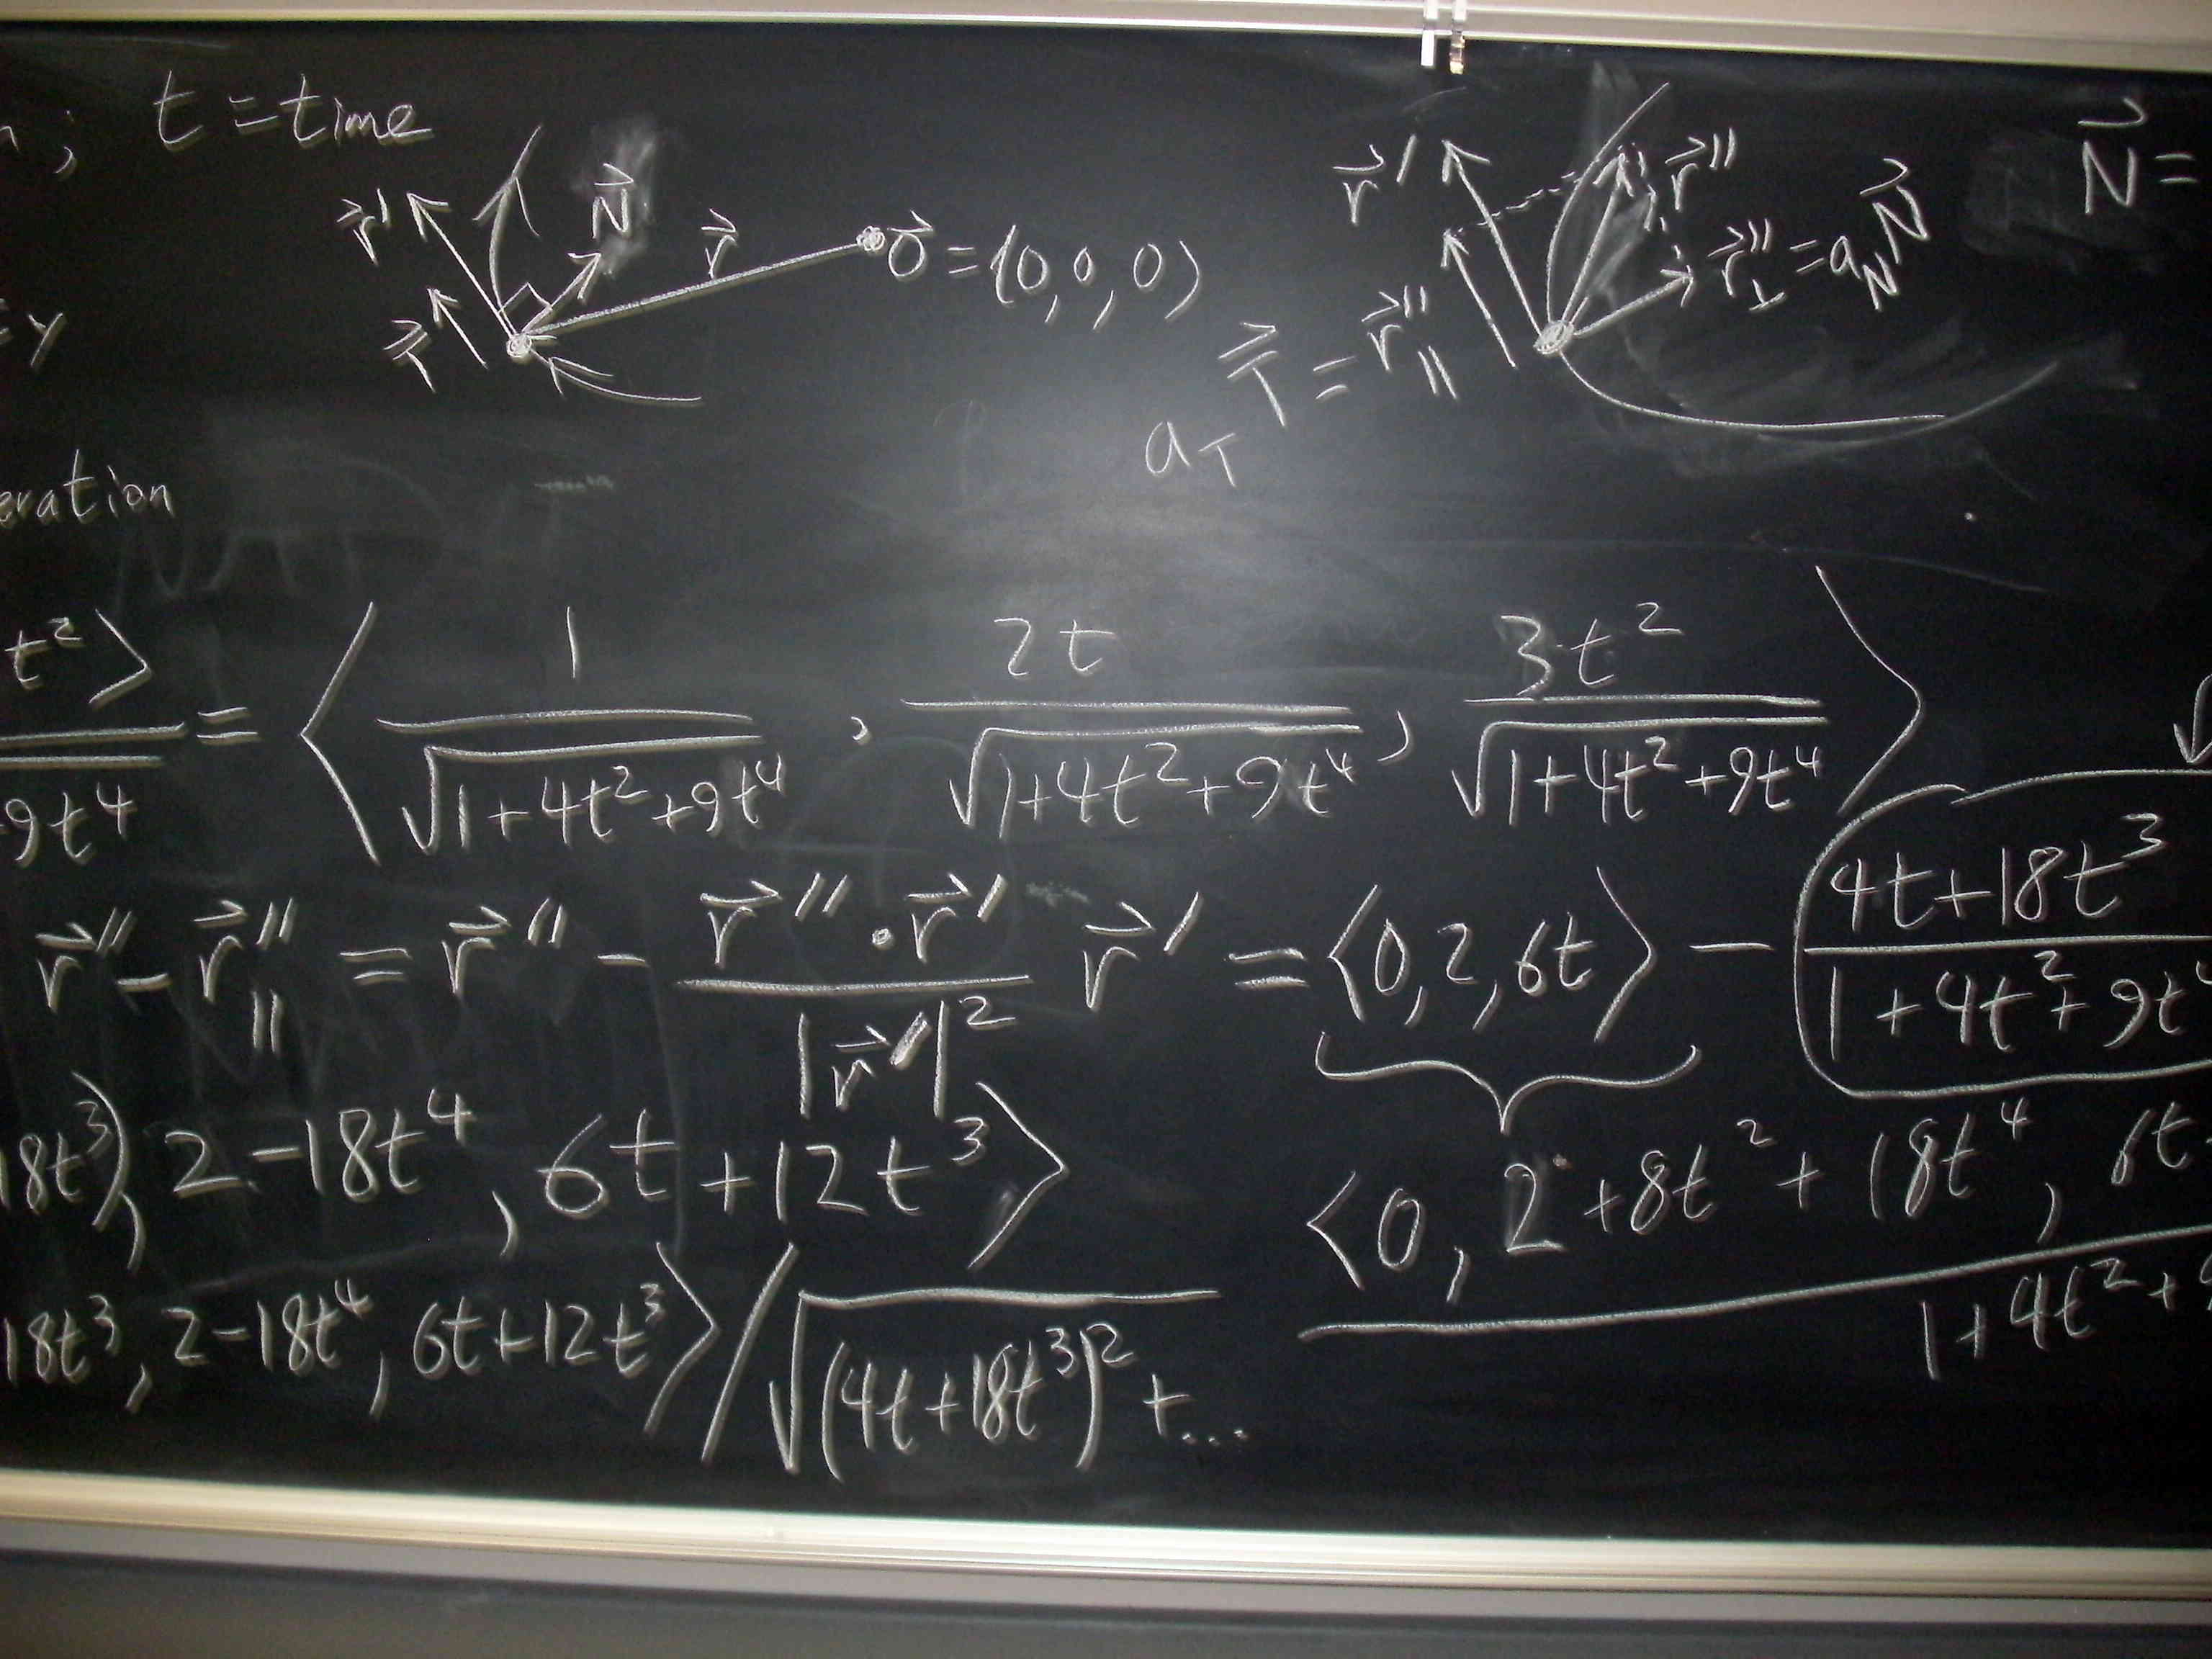 ; t = time
r⃗' N⃗ r⃗ O⃗ = (0, 0, 0)
T⃗
r⃗' r⃗'' r⃗''⊥ = a_N N⃗
a_T T⃗ = r⃗''∥
N⃗ =
= y
eration
t² ⟩ / 9t⁴ = ⟨ 1/√(1+4t²+9t⁴) , 2t/√(1+4t²+9t⁴) , 3t²/√(1+4t²+9t⁴) ⟩ √
r⃗'' - r⃗''∥ = r⃗'' - (r⃗'' · r⃗')/|r⃗'|² r⃗' = ⟨0, 2, 6t⟩ - (4t+18t³)/(1+4t²+9t⁴
18t³), 2-18t⁴, 6t+12t³⟩
⟨0, 2+8t²+18t⁴, 6t / 1+4t²+
18t³, 2-18t⁴, 6t+12t³⟩/√((4t+18t³)²+...